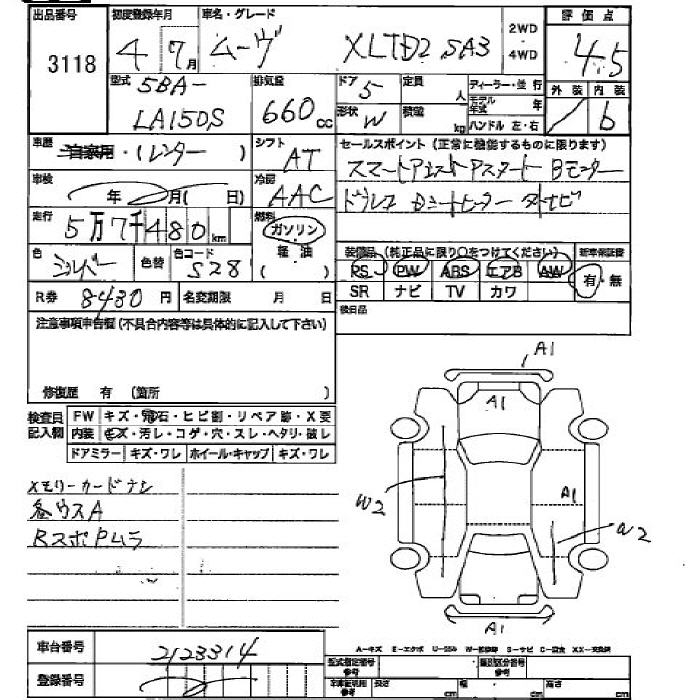 出品番号 初度登録年月 車名・グレード 評価点
3118 4年7月 ムーヴ XLTD2 SA3 2WD・4WD 4.5
型式 5BA- 排気量 ドア 5 定員 人 ディーラー・並行 外装 内装
LA150S 660cc 形状 W 積載 kg モデル年式 年 b
ハンドル 左・右
車歴 自家用・(レンター) シフト AT セールスポイント(正常に機能するものに限ります)
車検 年 月( 日) 冷房 AAC スマートアシスト Pスタート Bモニター
走行 5万7千480km 燃料 ガソリン ドラレコ Dシートヒーター ナビ
色 シルバー 色替 色コード S28 軽油 ( ) 装備品(純正品に限り○をつけてください) 新車保証書
PS PW ABS エアB AW 有・無
R券 8430円 名変期限 月 日 SR ナビ TV カワ
注意事項申告欄(不具合内容等は具体的に記入して下さい) 後日品
修復歴 有 (箇所 )
検査員記入欄 FW キズ・飛石・ヒビ割・リペア跡・X要
内装 キズ・汚レ・コゲ・穴・スレ・ヘタリ・破レ
ドアミラー キズ・ワレ ホイール・キャップ キズ・ワレ
A1
A1
メモリーカードナシ
W2 A1
各ウスA
W2
RスポPムラ
A1
A-キズ E-エクボ U-凹み W-補修跡 S-サビ C-腐食 XX-交換済
車台番号 2123314 型式指定番号 参考 類別区分番号 参考
登録番号 車庫証明用 参考 長さ cm 幅 cm 高さ cm